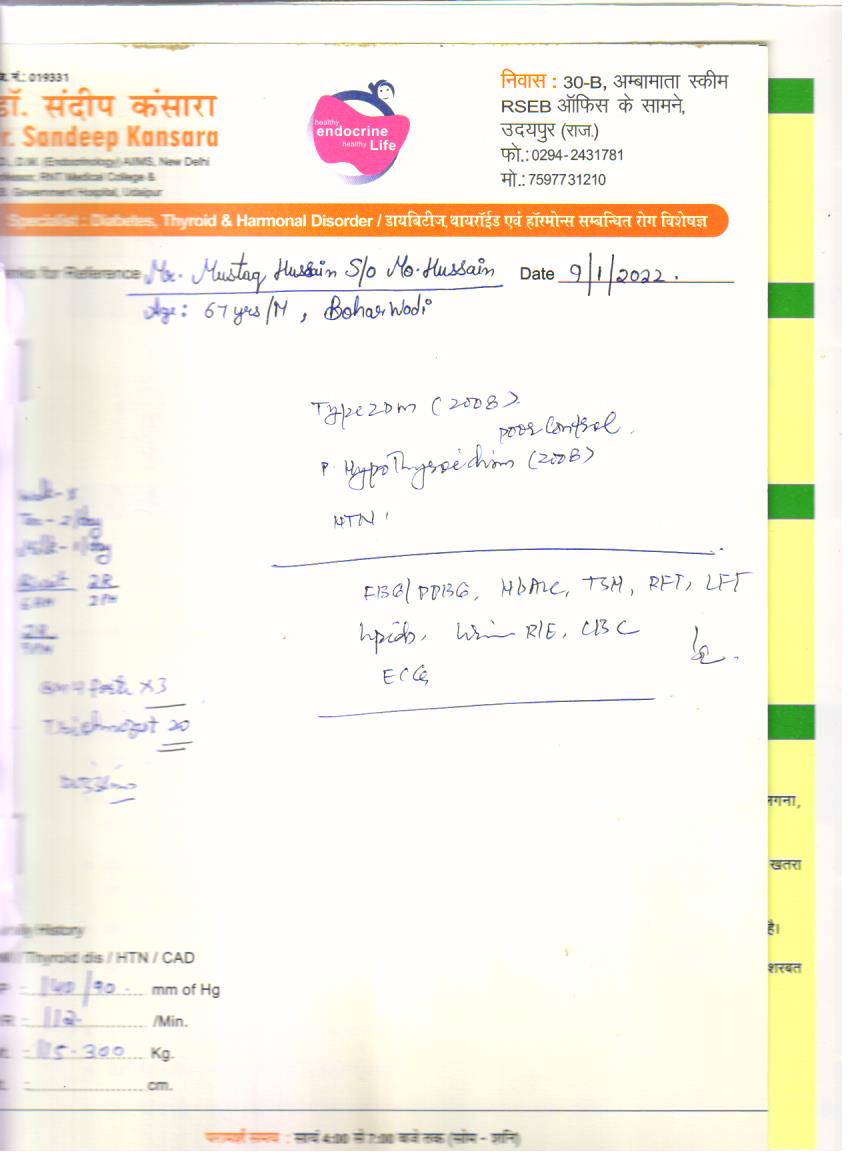 नं.: 019331
डॉ. संदीप कंसारा
r. Sandeep Kansara
D.M. (Endocrinology) AIIMS, New Delhi
RNT Medical College &
Government Hospital, Udaipur
healthy
endocrine
healthy Life
निवास : 30-B, अम्बामाता स्कीम
RSEB ऑफिस के सामने,
उदयपुर (राज.)
फो.: 0294-2431781
मो.: 7597731210
Specialist : Diabetes, Thyroid & Harmonal Disorder / डायबिटीज, थायरॉईड एवं हॉरमोन्स सम्बन्धित रोग विशेषज्ञ
for Reference Mr. Mustaq Hussain S/o Mo. Hussain Date 9/1/2022.
Age: 67 yrs/M, BoharWadi
Type 2 DM (2008)
poor control.
P. Hypothyroidism (2008)
HTN
FBG/PPBG, HbA1c, TSH, RFT, LFT
lipids, Urine R/E, CBC
ECG
Milk - 1/day
2R
2PM
2R
x3
20
History
Thyroid dis / HTN / CAD
140/90 mm of Hg
112 /Min.
115.300 Kg.
cm.
परामर्श समय : सायं 4:00 से 7:00 बजे तक (सोम - शनि)
गना,
खतरा
है।
शरबत